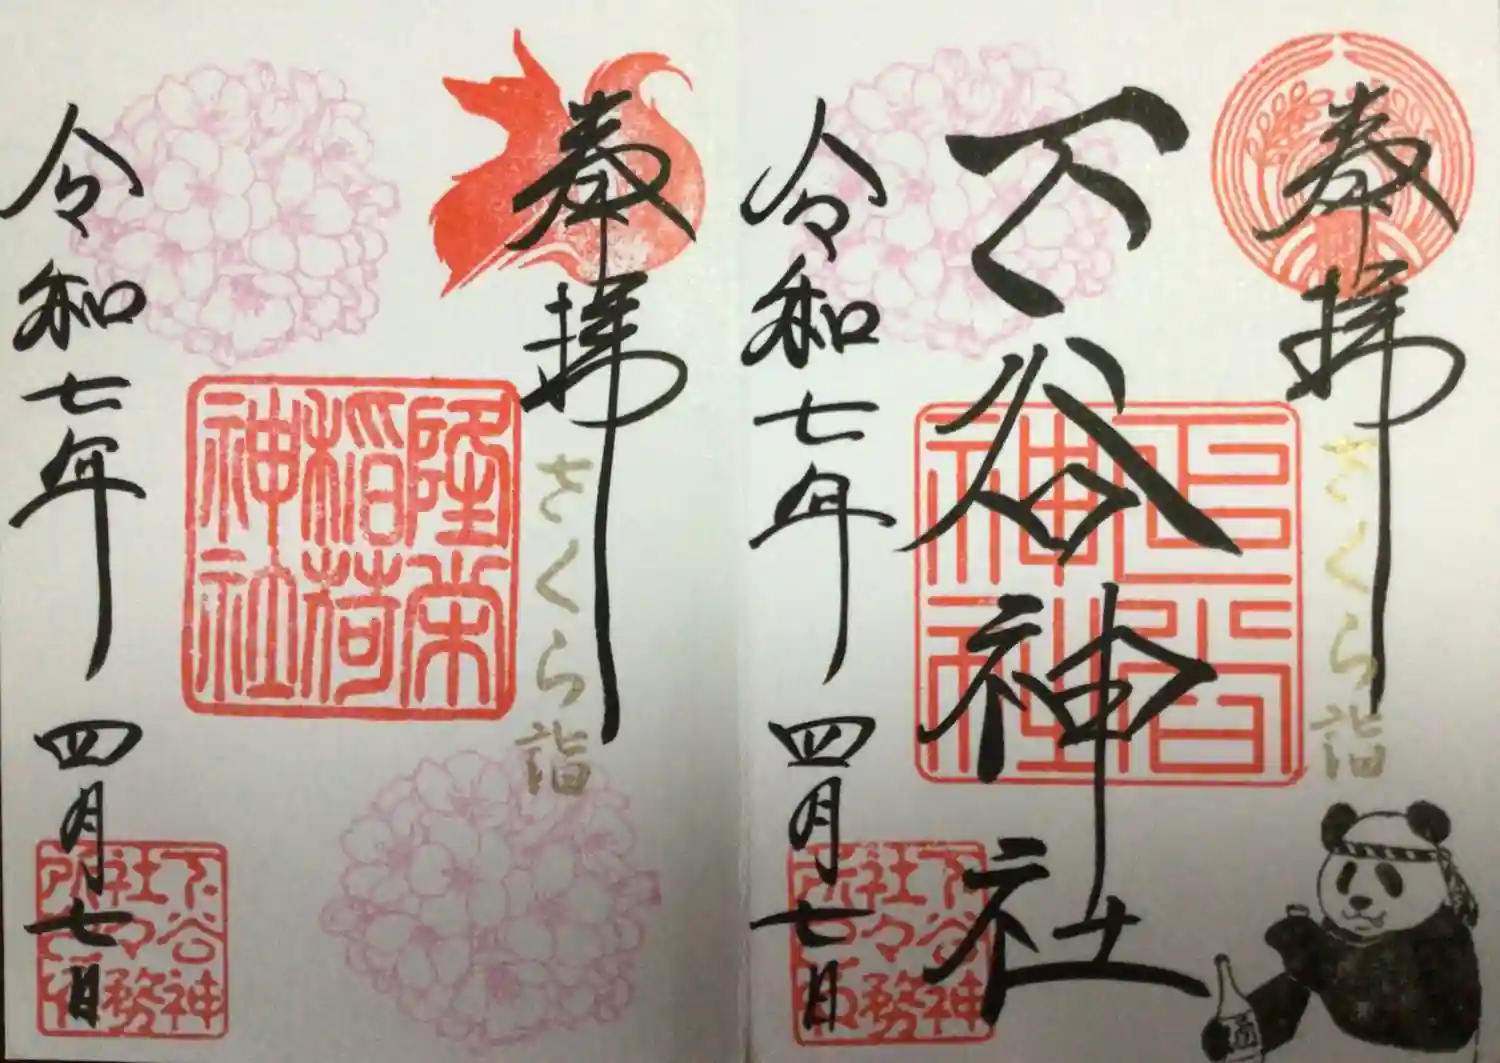 奉拝
さくら詣
下谷神社
下谷神社
下谷神社々務所印
令和七年 四月七日
酒
奉拝
さくら詣
隆栄稲荷神社
下谷神社々務所印
令和七年 四月七日